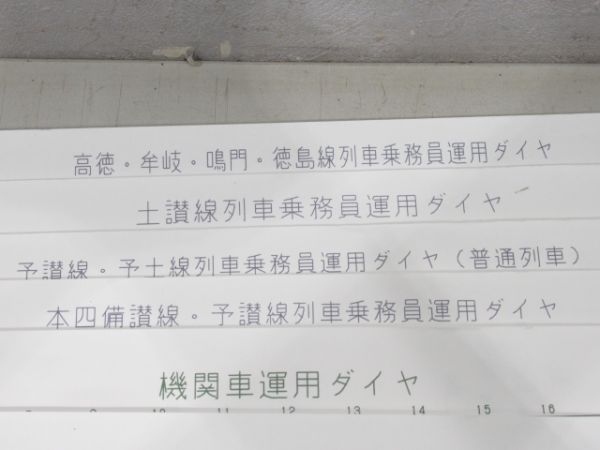 高徳。牟岐。鳴門。徳島線列車乗務員運用ダイヤ
土讃線列車乗務員運用ダイヤ
予讃線。予土線列車乗務員運用ダイヤ(普通列車)
本四備讃線。予讃線列車乗務員運用ダイヤ
機関車運用ダイヤ
10 11 12 13 14 15 16